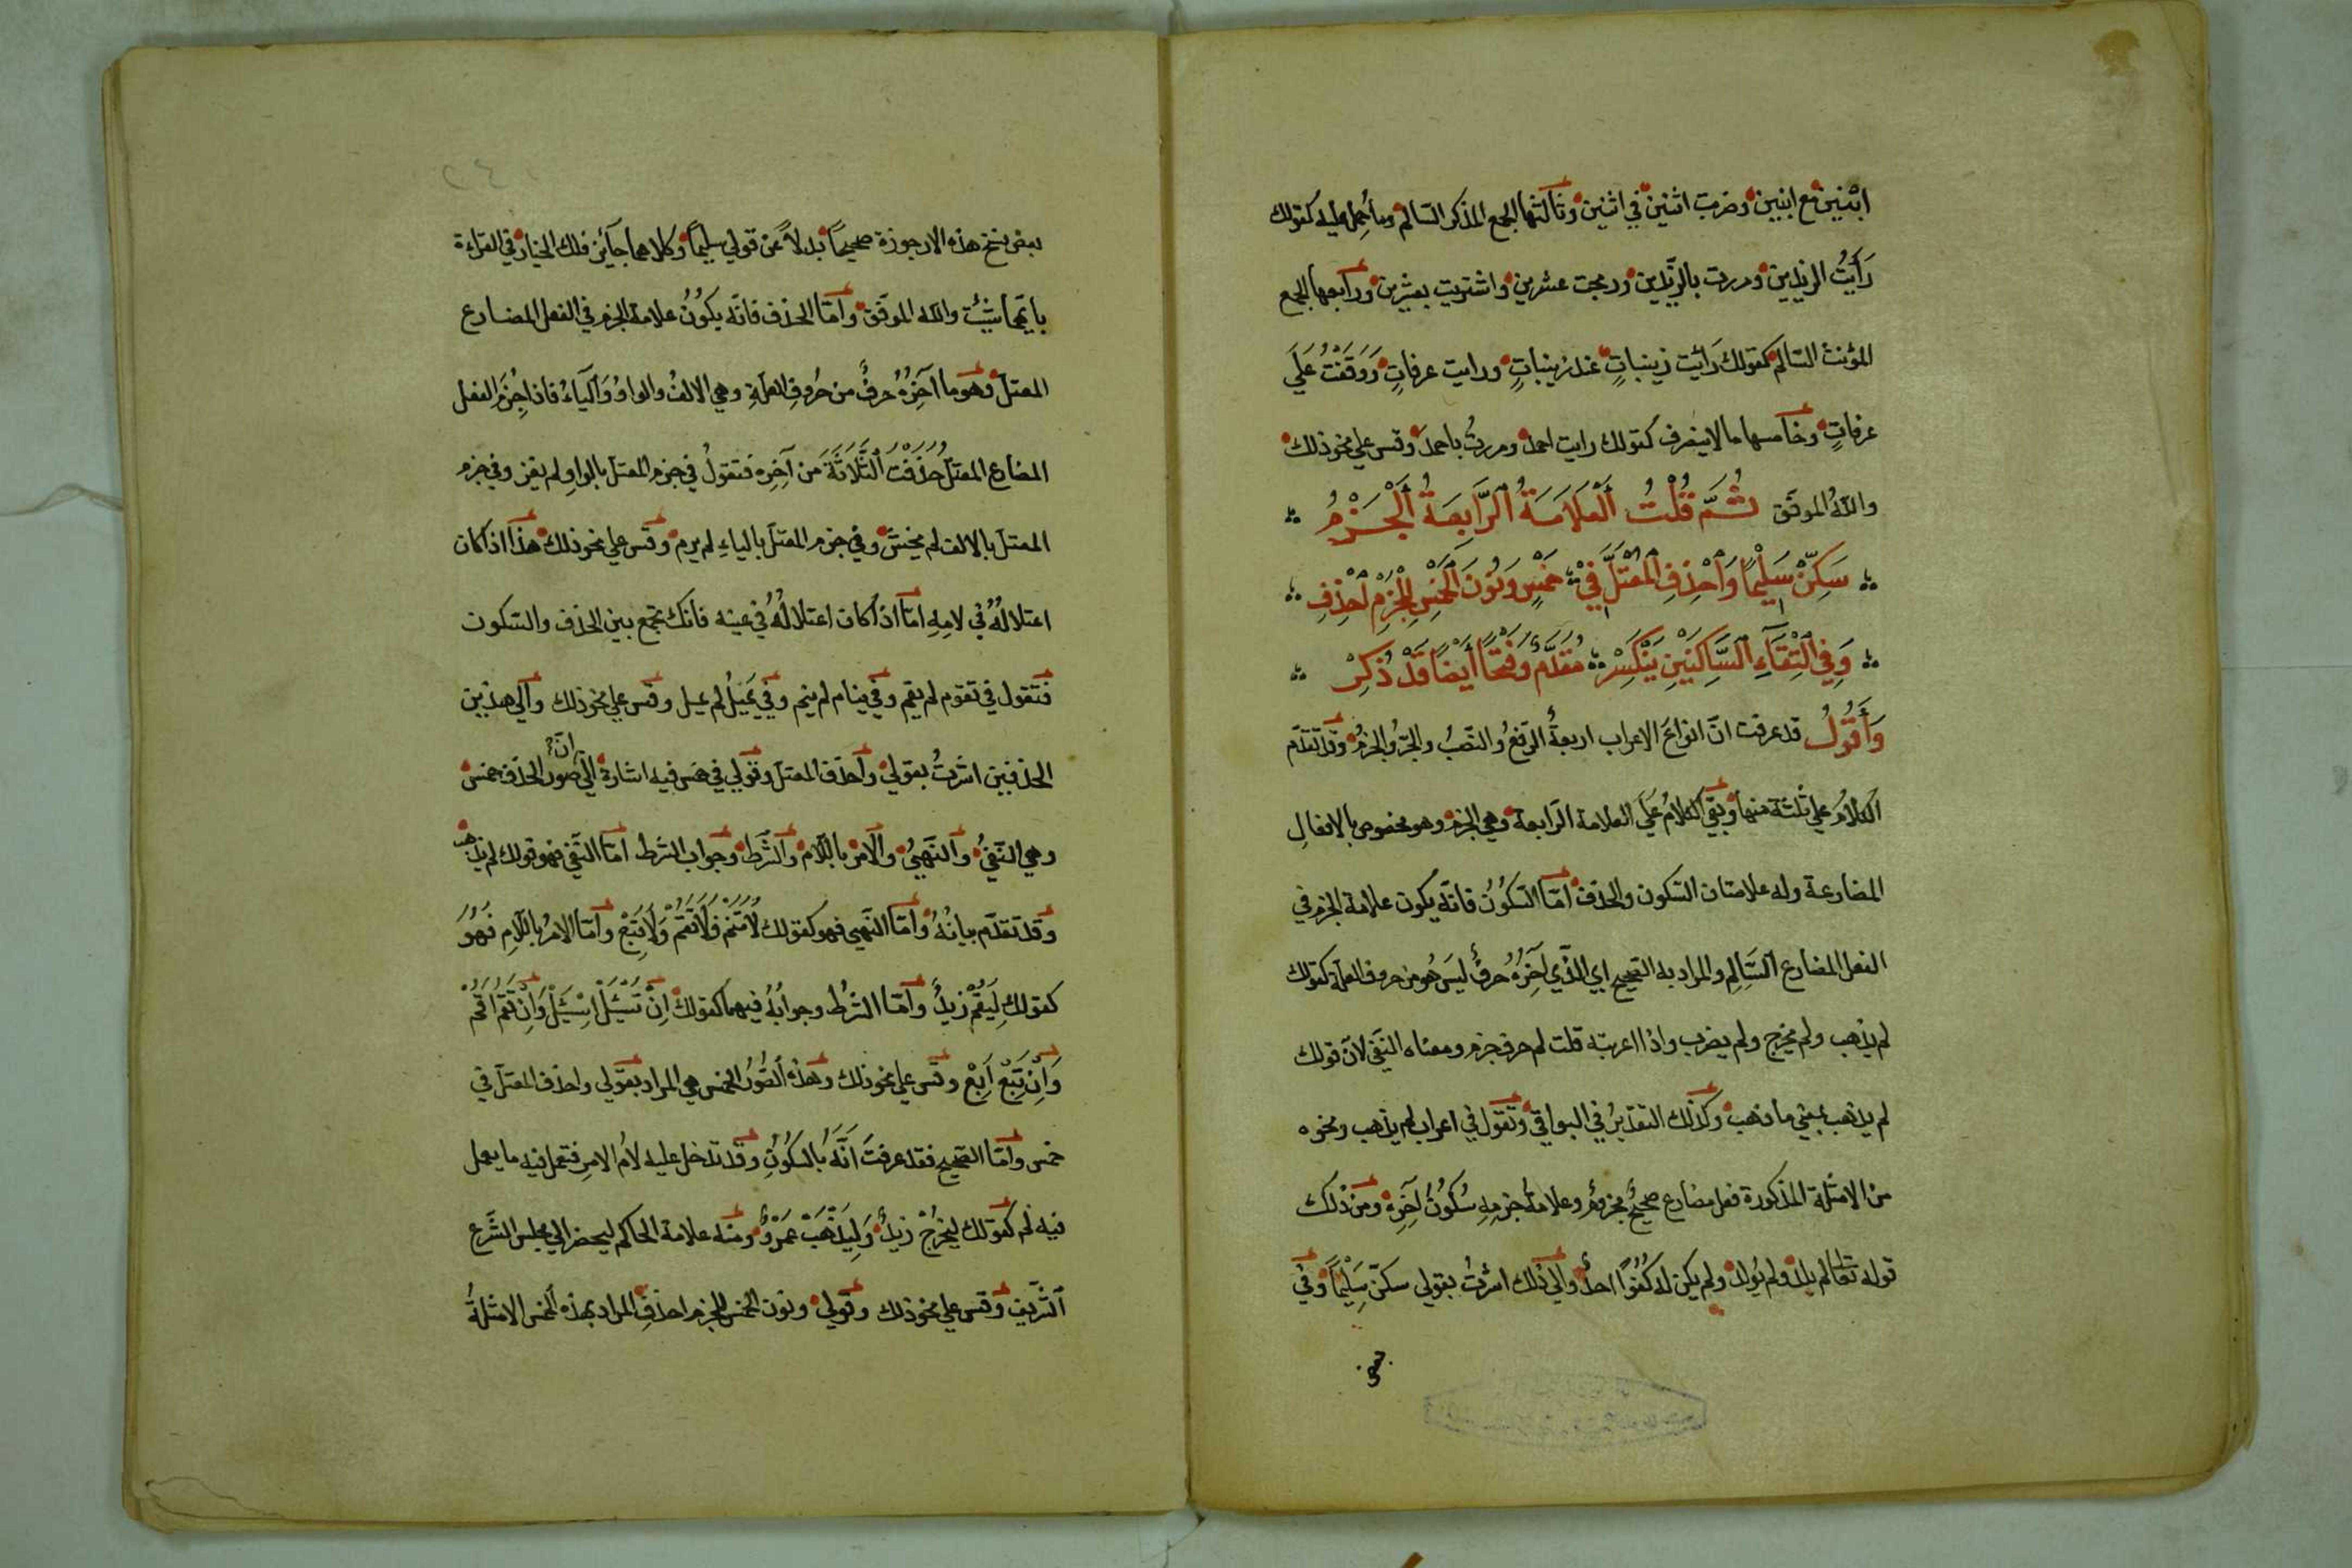 اثنين مع اثنين وضربت اثنين في اثنين وثالثها الجمع المذكر السالم وما حمل عليه كقولك
رَأَيْتُ الزيدين ومررت بالزَّيدين ودبجت عشرين واشتريت بعشرين ورابعها الجمع
المؤنث السالم كقولك رَأيت زينباتٍ عند زينباتٍ ورايت عرفاتٍ وَوَقَفْتُ عَلَى
عرفاتٍ وخامسها ما لا ينصرف كقولك رايت احمدَ ومررتُ باحمدَ وقس علي نحو ذلك
والله الموفق ثُمَّ قُلْتُ اَلْعَلَامَةُ الرَّابِعَةُ اَلْجَزْمُ
سَكِّنْ سَلِيْمًا وَاَحْذِفِ الْمُعْتَلَّ فِيْ خمسٍ وَنُوْنَ الْخَمْسِ لِلْجَزْمِ اَحْذِفِ
وَفِي الْتِقَآءِ السَّاكِنَيْنِ يَنْكَسِرْ مُقَدَّمٌ وَفَتْحًا أَيْضًا قَدْ ذُكِرْ
وَأَقُوْلُ قد عرفت انّ انواعَ الاعراب اربعةٌ الرّفعُ والنّصبُ والجرّ والجزمُ وقد تقدّم
الكلامُ علي ثلثة منها وبقي الكلامُ عَلَى العلامة الرّابعة وهي الجزم وهو مخصوص بالافعالِ
المضارعة وله علامتان السّكون والحذف امّا السّكُوْنُ فانّه يكون علامة الجزم في
الفعل المضارع السَّالِمِ والمراد به الصّحيح اي الذي اَخِرُهُ حرفٌ ليسَ هُو من حروف العلّة كقولك
لم يذهب ولم يخرج ولم يضرب واذا اعربته قلت لم حرف جزم ومعناه النفي لانّ قولك
لم يذهب بمعني ما ذهب وكذلك التقديرُ في البواقي وتقول في اعراب لم يذهب ونحوه
من الامثلة المذكورة فعل مضارع صحيحٌ مجزومٌ وعلامةُ جزمِهِ سُكُوْنُ اَخِرِهِ ومن ذلك
قوله تعالى لم يلد ولم يولد ولم يكن له كُفُوًا احدٌ والي ذلك اشرتُ بقولي سكّن سَلِيْمًا وفي
بعض
بعض نسخ هذه الارجوزة صحيحًا بدلاً عن قولي سليمًا وكلاهما جآئز فلك الخيار في القراءة
بايّهما شيئت والله الموفّق وامّا الحذف فانّه يكوْنُ علامة الجزم في الفعل المضارع
المعتلّ وهو ما اَخِرُهُ حرفٌ من حُروفِ العلّةِ وهي الالفُ والواوُ وَاَليآءُ فاذا جُزِمَ الفعل
المضارع المعتلّ حُذِفَتْ اَلثَّلَاثَةُ من آخِرِه فتقولُ في جزم المعتلّ بالواوِ لم يغز وفي جزم
المعتلّ بالالف لم يخش وفي جزم المعتلّ بالياءِ لم يرم وقس علي نحو ذلك هذا اذا كان
اعتلالُهُ في لامِهِ امّا اذا كان اعتلالُهُ في عينه فانّك تجمع بين الحذف والسّكون
فتقول في تقوم لم يقم وفي ينام لم ينم وفي يَمِيلُ لم يمل وقس علي نحو ذلك والي هذين
الحذفين اشرتُ بقولي وأحذف المعتلّ وقولي في خمس فيه اشارة الي انّ صور الحذف خمس
وهي النّفيُ والنّهيُ والامرُ باللّام والشّرط وجواب الشّرط امّا النّفي فهو قولك لم يذهب
وقد تقدّم بيانُهُ وامّا النّهي فهو كقولك لَا تَنَمْ وَلَا تَقُمْ وَلَا تَبِعْ وامّا الامرُ باللّامِ فَهُوَ
كقولكِ لِيَقُمْ زيدٌ وامّا الشّرطُ وجوابُهُ فيهما كقولك اِنْ تَسْئَلْ اَسْئَلْ وَاِنْ تَقُمْ اَقُمْ
وَاِنْ تَبِعْ اَبِعْ وقس علي نحو ذلك وهذه الصُّورُ الخمس هي المراد بقولي واحذف المعتلّ في
خمس وامّا الصّحيح فقد عرفتَ اَنَّهُ بالسّكُوْنِ وقد تدخل عليه لامُ الامرِ فتعمل فيه ما يعمل
فيه لم كقولك ليخرُجْ زيدٌ وَلِيَذْهَبْ عَمْرٌو ومنه علامة الحاكم ليحضر الي مجلس الشّرع
الشّريف وقس علي نحو ذلك وقولي ونون الخمس للجزم احذفِ المراد بهذه الخمس الامثلةُ